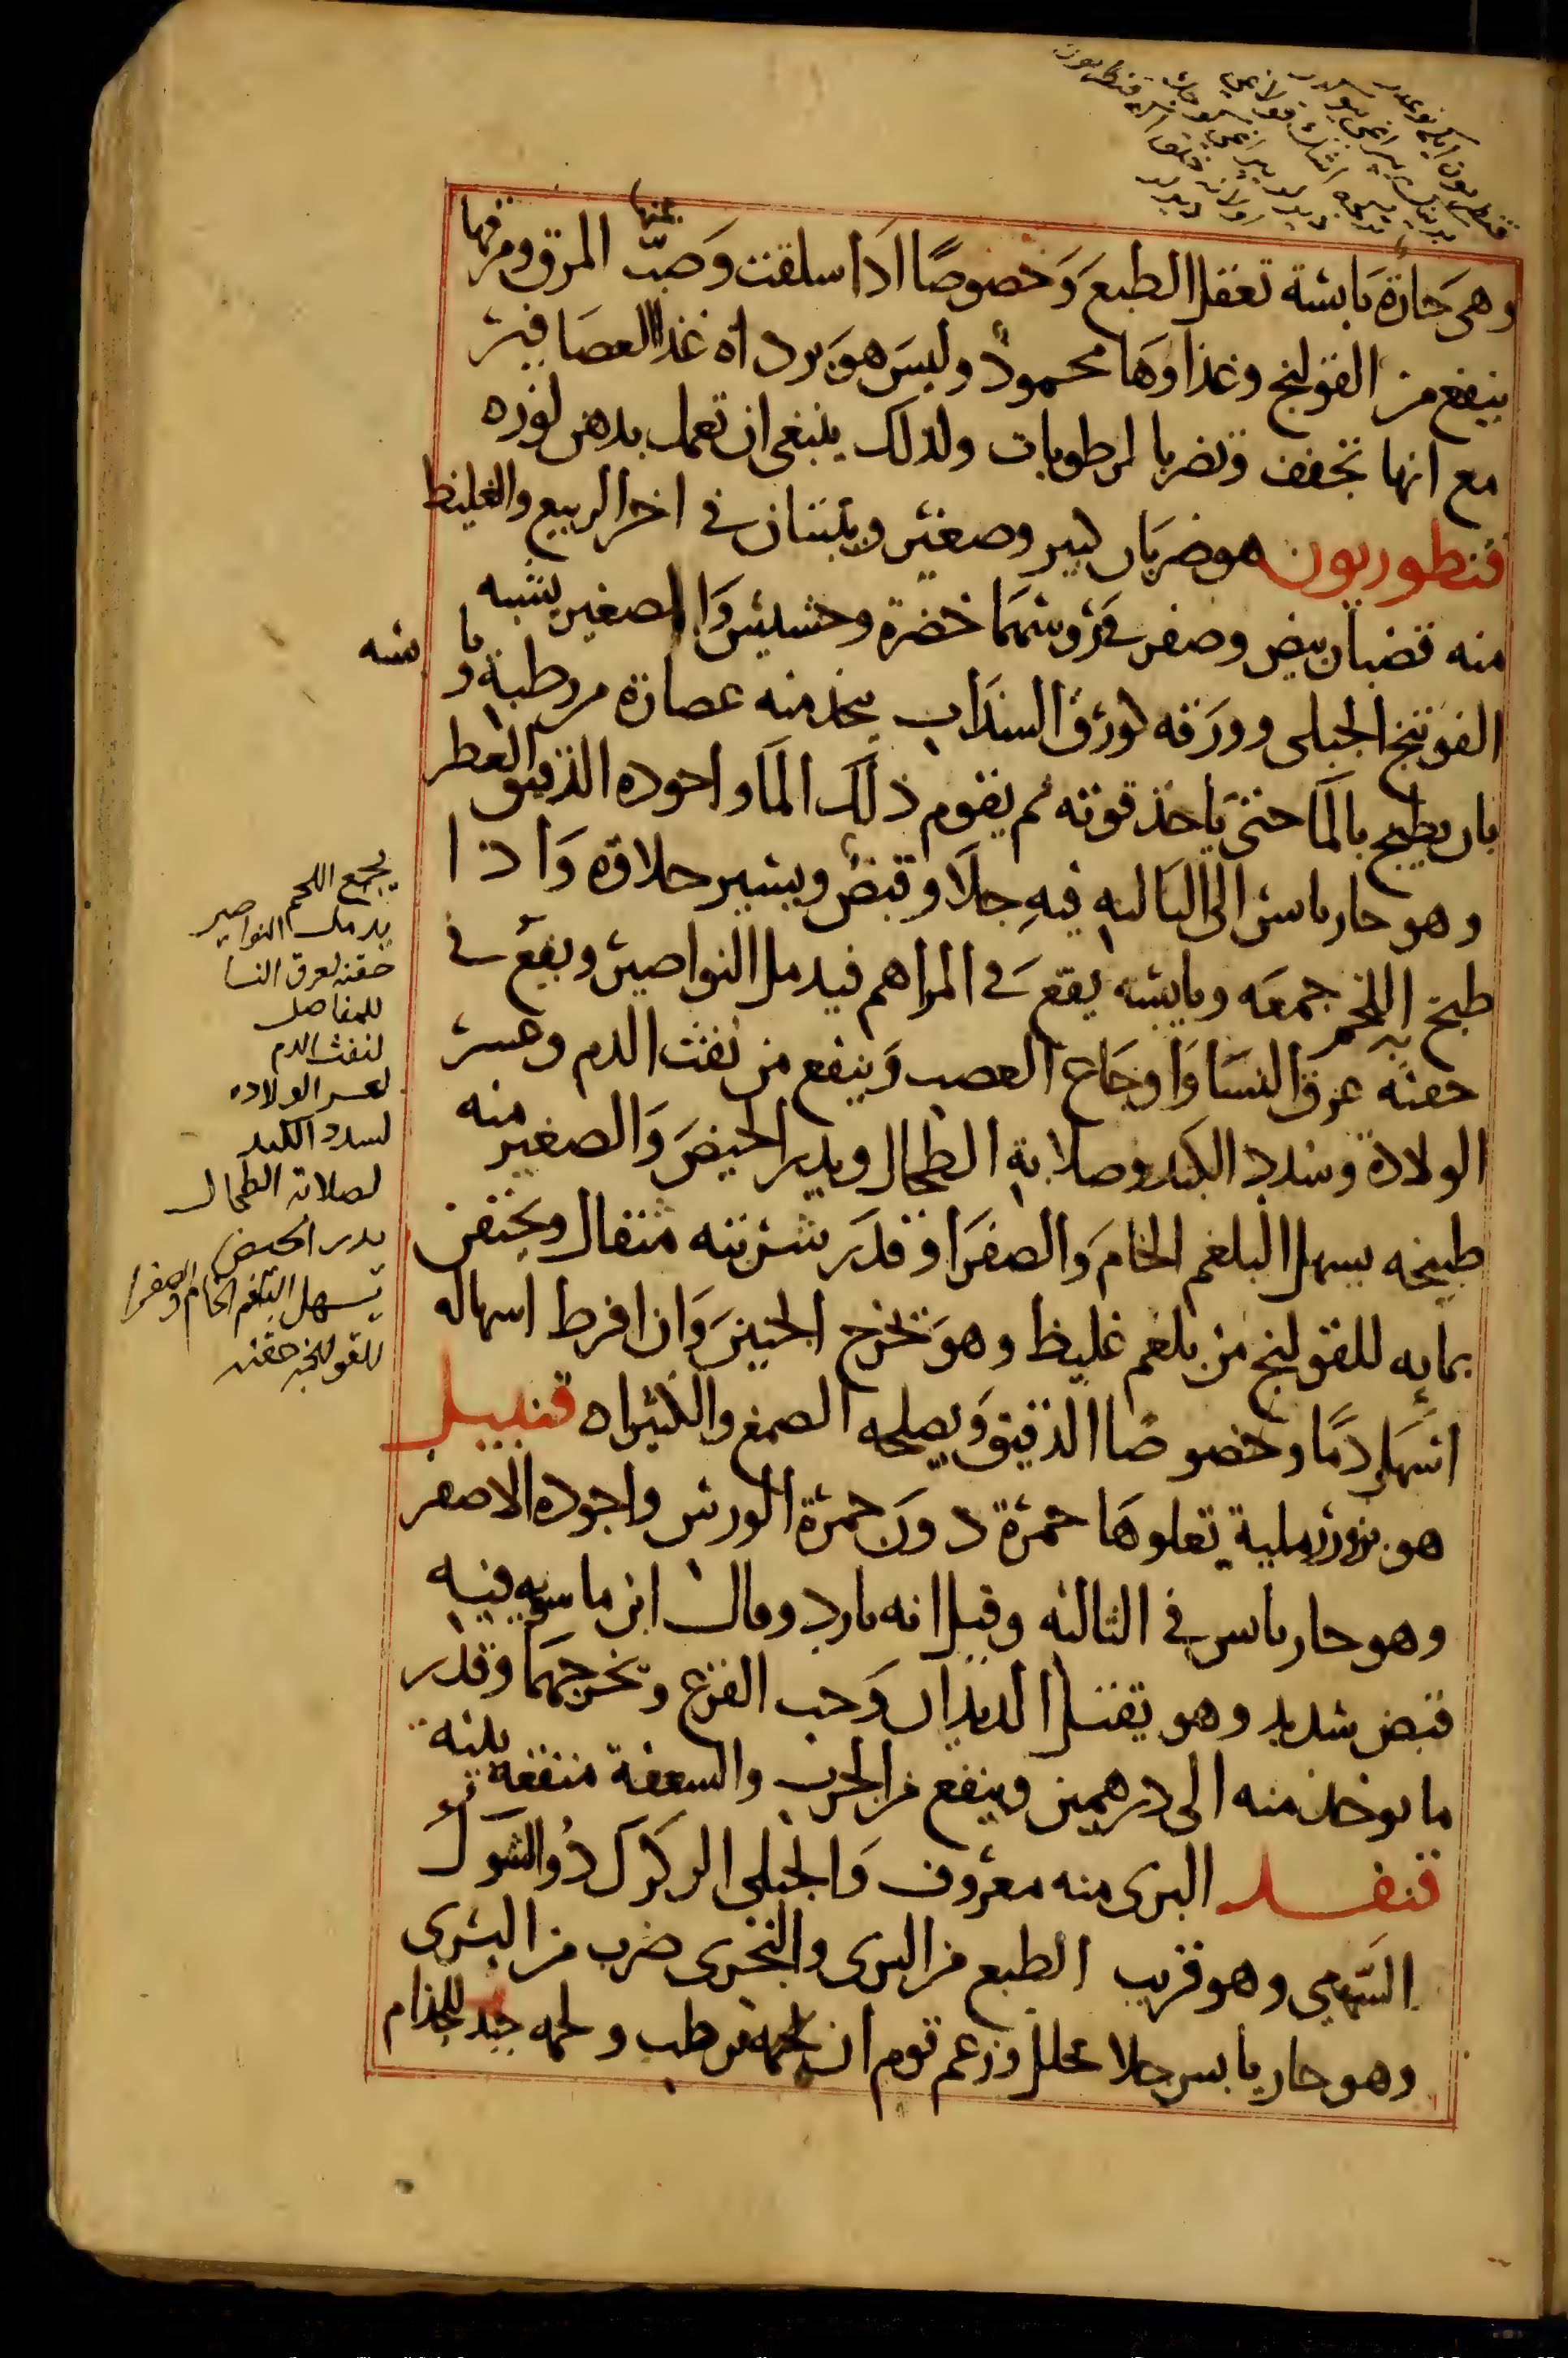 وهى حارة يابسة تعقل الطبع وخصوصًا اذا سلقت وصبّ عنها المرق ومرقها
ينفع من القولنج وغذاوها محمود وليس هو بردا ه غذا العصافير
مع انها تجفف وتضر بالمرطوبات ولذلك ينبغى ان تعمل بدهن لوز ه
قنطوريون هو ضربان كبير وصغير وينبتان فى اخر الربيع والغليظ
منه قضبان بيض وصفر فى روسها خضرة وحشيش والصغير يشبه
الفوتنج الجبلى وورقه كورق السذاب يتخذ منه عصارة من رطبة ويا بسه
بان يطبخ بالما حتى ياخذ قوته ثم يقوم ذلك الما واجوده الدقيق العطر
وهو حار يابس الى الثالثه فيه جلا وقبض ويسير حلاوة واذا
طبخ به اللحم جمعه ويابسه يقع فى المراهم فيدمل النواصير ويقع فى
حقنه عرق النسا واوجاع العصب وينفع من نفث الدم وعسر
الولادة وسدد الكبد وصلابة الطحال ويدر الحيض والصغير منه
طبيخه يسهل البلغم الخام والصفرا وقدر شربته مثقال ويحتقن
بمايه للقولنج من بلغم غليظ وهو يخرج الجنين وان افرط اسهاله
اسهل دمًا وخصوصًا الدقيق ويصلحه الصمغ والكثيرا ه قنبيل
هو بزور رملية تعلوها حمرة دون حمرة الورس واجوده الاصفر
وهو حار يابس فى الثالثه وقيل انه بارد وقال ابن ماسويه فيه
قبض شديد وهو يقتل الديدان وحب القرع ويخرجهما وقدر
ما يوخذ منه الى درهمين وينفع من الجرب والسعفة منفعة بينة
قنفد البرى منه معروف والجبلى الدكدك ذو الشوك
السهمى وهو قريب الطبع من البرى والبحرى ضرب من البرى
وهو حار يابس جلا محلل وزعم قوم ان لحمه مرطب ولحمه جيد للجذام
يجمع اللحم
يدمل النواصير
حقنه لعرق النسا
للمفاصل
لنفث الدم
لعسر الولاده
لسدد الكبد
لصلابة الطحال
يدر الحيض
يسهل البلغم الخام والصفرا
للقولنج حقنه